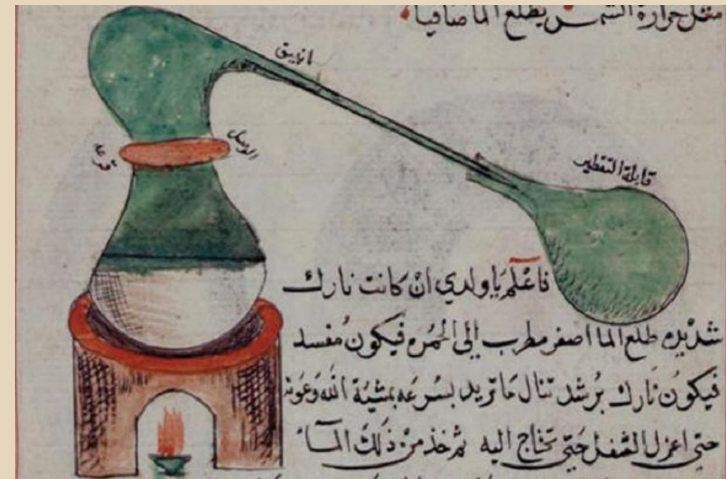 مثل حرارة الشمس يطلع الما صافيا
انبيق
الوصل
قابلة التقطير
فاعلم يا ولدي ان كانت نارك
شديده طلع الما اصفر مطرب الى الحمره فيكون مفسد
فيكون نارك برشد تنال ما تريد بسرعه بمشيئة الله وعونه
حتى اعزل الثفل حتى تحتاج اليه ثم خذ من ذلك الماء